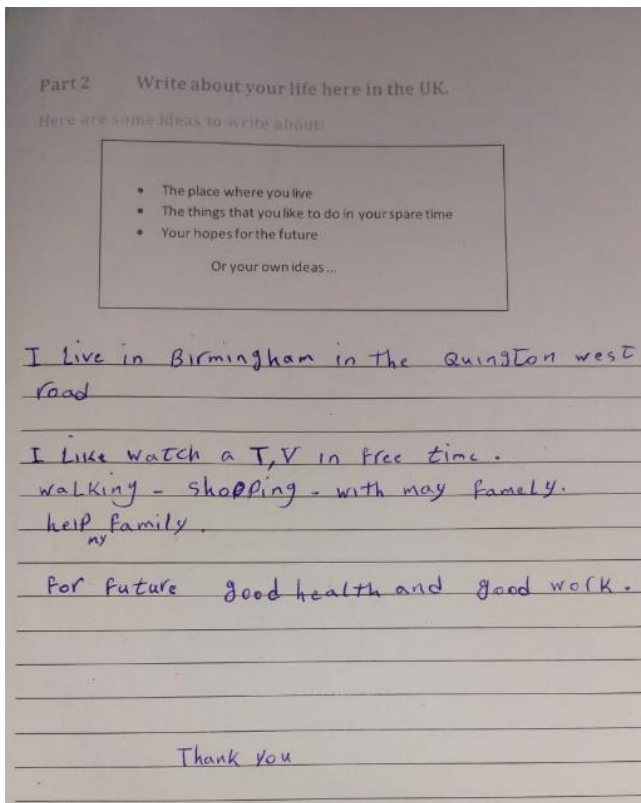 Part 2 Write about your life here in the UK.
Here are some ideas to write about:
• The place where you live
• The things that you like to do in your spare time
• Your hopes for the future
Or your own ideas...
I Live in Birmingham in the Quington west
road
I Like watch a T,V in free time.
walking - shopping - with may famely.
help my family.
For future good health and good work.
Thank you